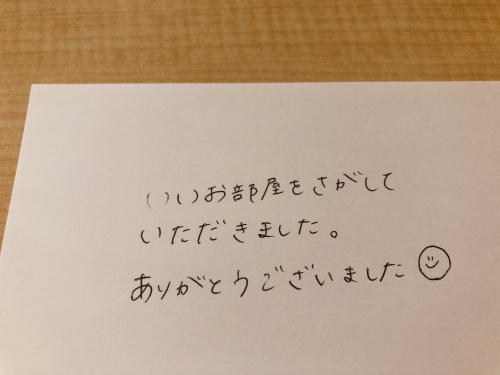 いいお部屋をさがして
いただきました。
ありがとうございました